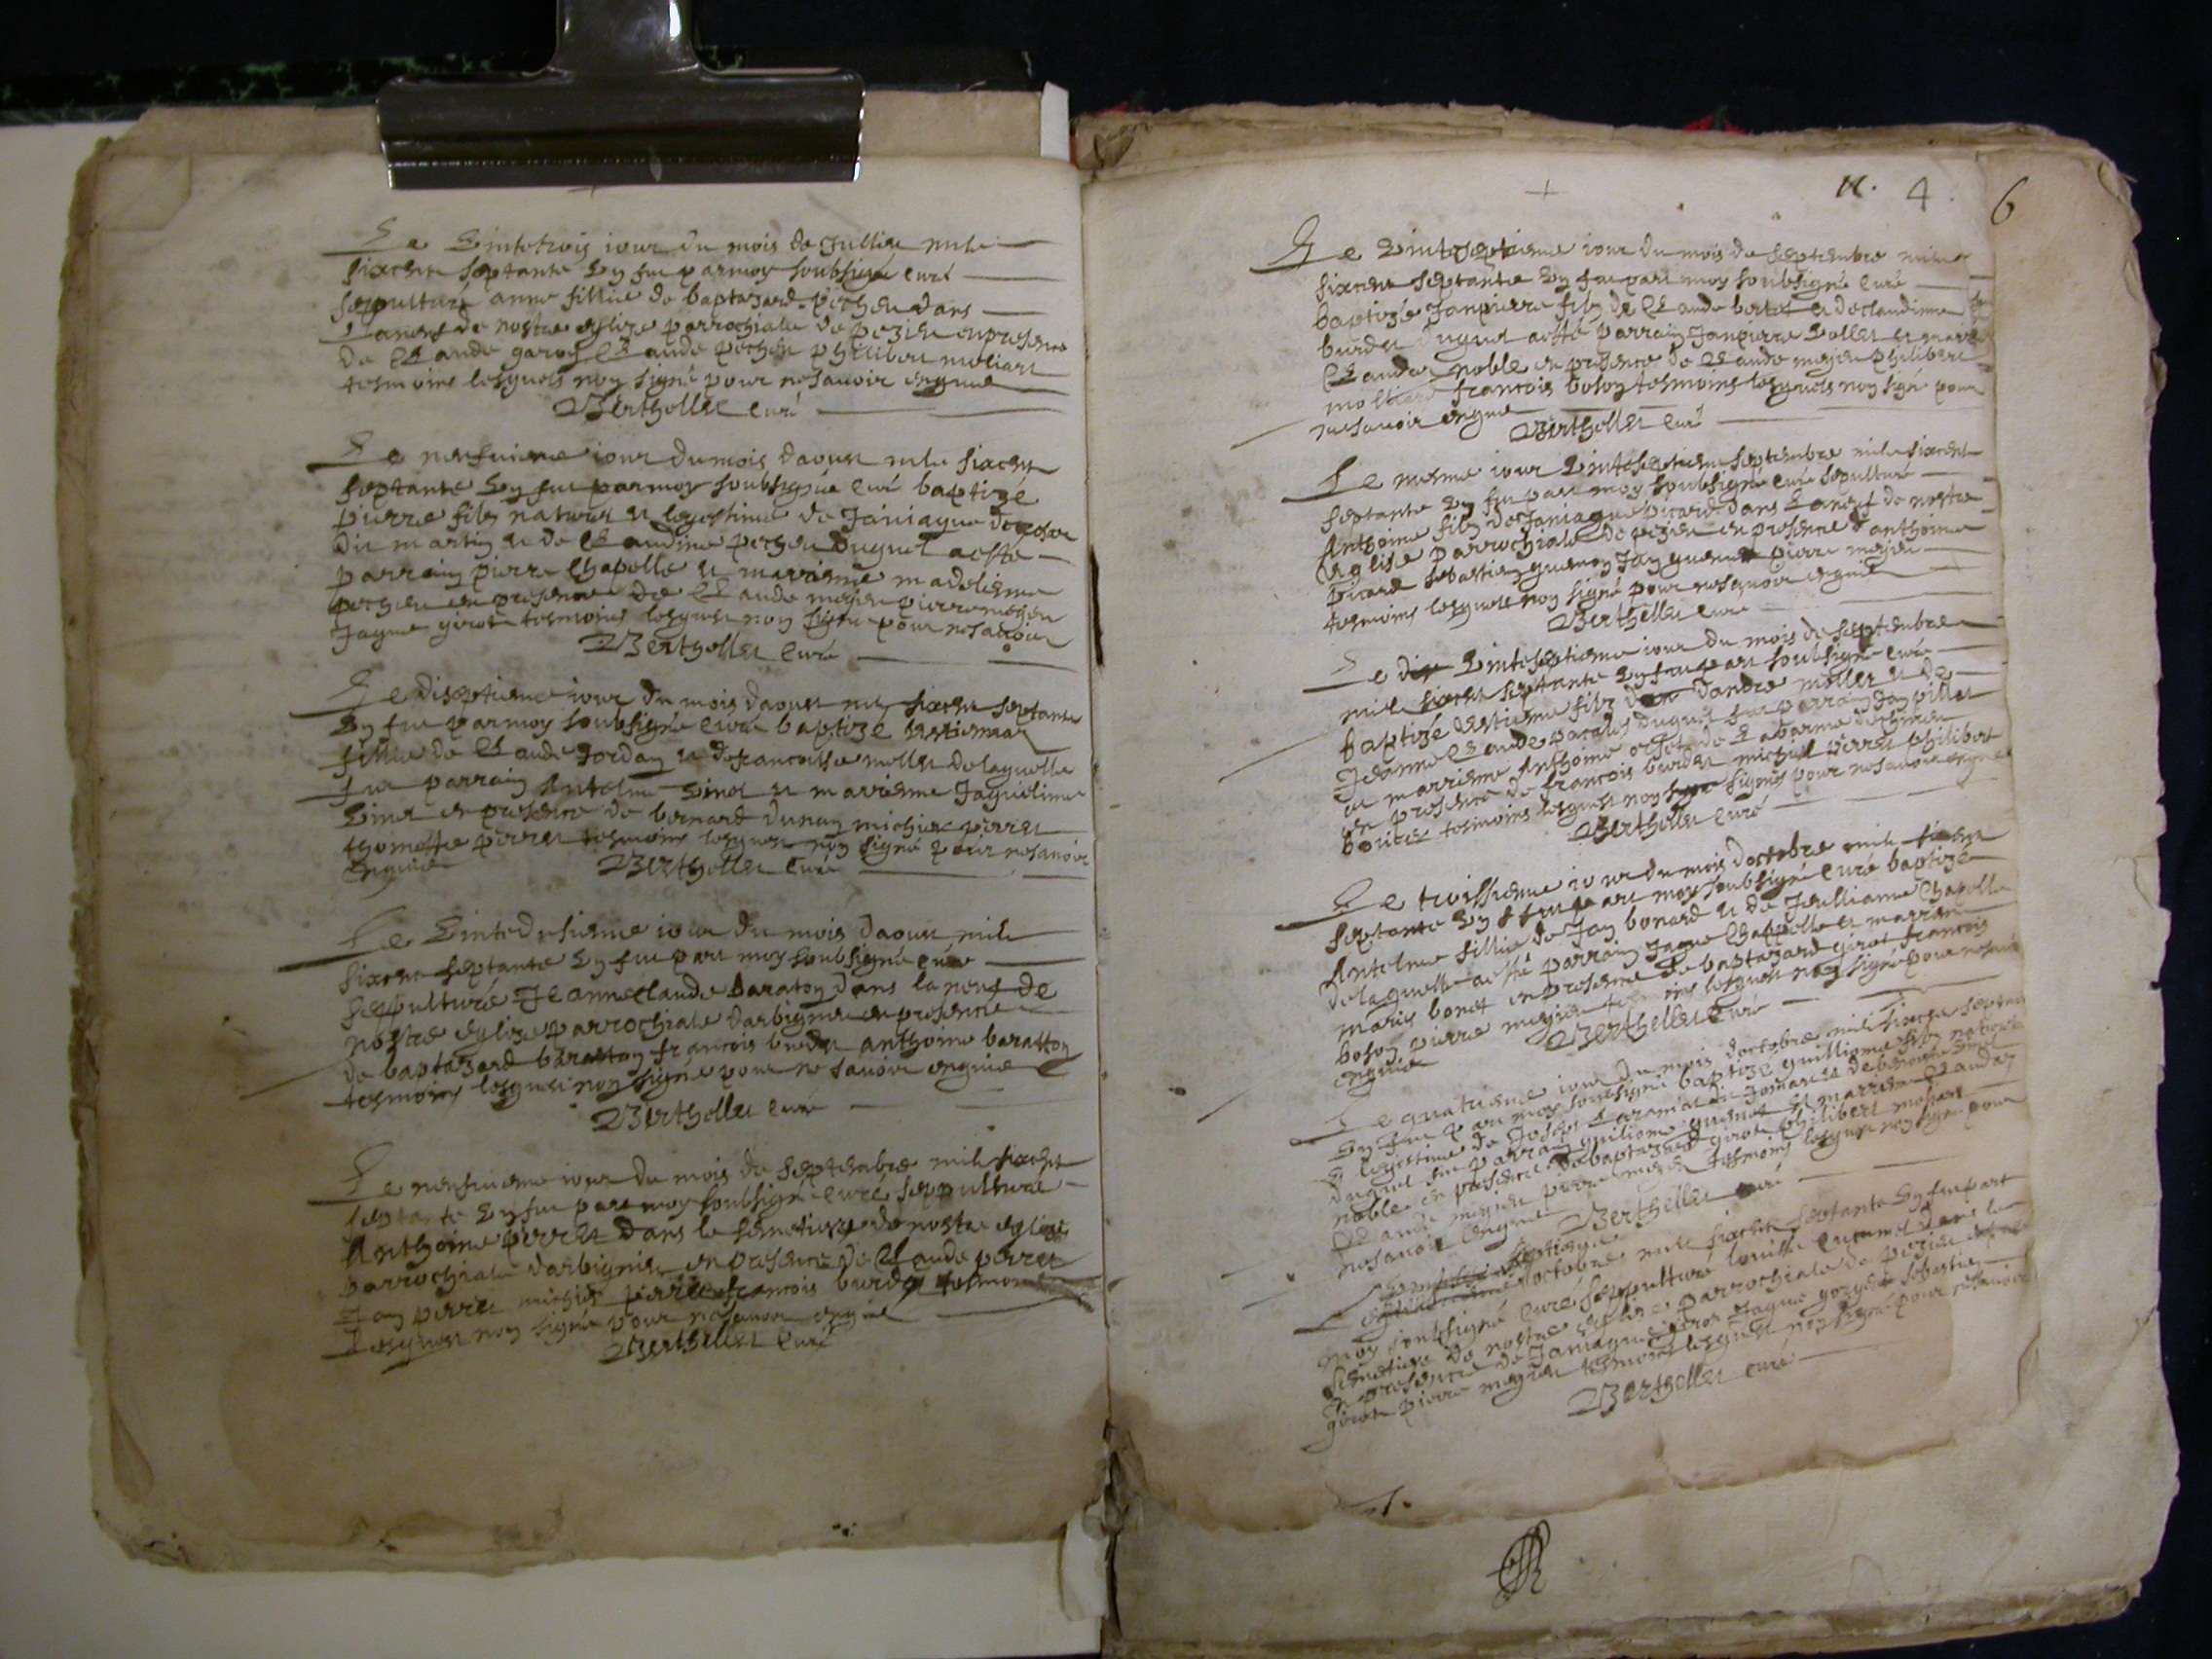 Le vintetrois iour du mois de Jullie mile
sixcent septante un fut par moy soubsigné curé
sepulturé anne fillie de baptazard pocheu dans
la neuf de nostre eglize parrochiale de pezieu en presence
de Claude garoz Claude pochieu philibert moliart
tesmoins lesquels non signé pour ne savoir enquis
Berthollet curé
Le neufvieme iour du mois daoust mile sixcent
septante un fut par moy soubsigné curé baptizé
pierre filz naturel et legestime de Janiaque
dit martin et de Claudine pocheu duquel a esté
parrain pierre Chapelle et marrisne madelisne
pochieu en presence de Claude mesieu pierre mesieu
Jaque girot tesmoins lesquels non signé pour ne savoir
Berthollet curé
Le diseptieme iour du mois daoust mil sixcent septante
un fut par moy soubsigné curé baptizé
fillie de Claude Jordan et de francoisse mollet de laquelle
fut parrain Antelme vinet et marrisne Jaquelinne
vinet en presence de bernard dunan michiel perret
thomette perret tesmoins lesquels non signé pour ne savoir
enquis Berthollet Curé
Le vintedusieme iour du mois daoust mile
sixcent septante un fut par moy soubsigné curé
sepulturé Jeanne claude baraton dans la neuf de
nostre eglize parrochiale darbignieu en presence
de baptazard baratton francois burdet anthoine baratton
tesmoins lesquels non signé pour ne savoir enquis
Berthollet curé
Le neufvieme iour du mois de septembre mile sixcent
septante un fut par moy soubsigné curé sepulturé
Anthoine perret dans le semetiere de nostre eglize
parrochiale darbignieu en presence de Claude perret
Jan perret michiel perret francois burdet tesmoins
lesquels non signé pour ne savoir enquis
Berthollet Curé
4
6
Le vintseptieme iour du mois de septembre mile
sixcent septante un fut par moy soubsigné curé
baptizé Janpierre filz de Claude bertet et de claudinne
burdet duquel a esté parrain Janpierre vollet et marr
Claudaz noble en presence de Claude mesieu philibert
moliard francois boson tesmoins lesquels non signé pour
ne savoir enquis Berthollet curé
Le mesme iour vinteseptieme septembre mile sixcent
septante un fut par moy soubsigné curé sepulturé
Anthoine filz de Janiaque picard dans la neuf de nostre
eglise parrochiale de pezieu en presence danthoine
picard sebastien guenon Jan guenet pierre mesieu
tesmoins lesquels non signé pour ne savoir enquis
Berthollet curé
Le vinteseptieme iour du mois de septembre
mile sixcent septante un fut par soubsigné curé
baptizé estienne filz dandre mollet et de
Jeanne Claude duquel fut parrain Jan pillet
et marrisne Anthoine
en presence de francois burdet michiel perret philibert
tesmoins lesquels non signés pour ne savoir enquis
Berthollet curé
Le troissieme iour du mois doctobre mile sixcent
septante un fut par moy soubsigné curé baptizé
Antelme fillie de Jan bonard et de Jullianne Chapelle
de laquelle a esté parrain Jaque Chappelle et marrane
marie bonet en presence de baptazard girot francois
boson pierre mesieu tesmoins lesquels non signé pour ne savoir
enquis Berthollet Curé
Le quatrieme iour du mois doctobre mil sixcent septante
un fut par moy soubsigné baptizé guilliome filz naturel
et legestime de Joseph
duquel fut parrain guilliome guenet et marrisne Claudaz
noble en presence de baptazard girot philibert moliart
Claude mesieu pierre mesieu tesmoins lesquels non signé pour
ne savoir enquis Berthollet curé
septieme
doctobre mile sixcent septante un fut par
moy soubsigné curé sepulturé dans le
semetiere de nostre eglize parrochiale de pezieu
en presence de Janiaque girot Jaque sebastien
girot pierre mesieu tesmoins lesquels non signé pour ne savoir
Berthollet curé